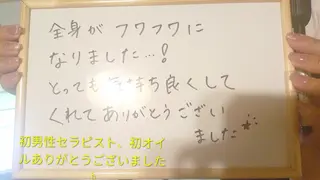 全身がフワフワに
なりました…!
とっても気持ち良くして
くれてありがとうござい
ました
初男性セラピスト、初オイ
ルありがとうございました